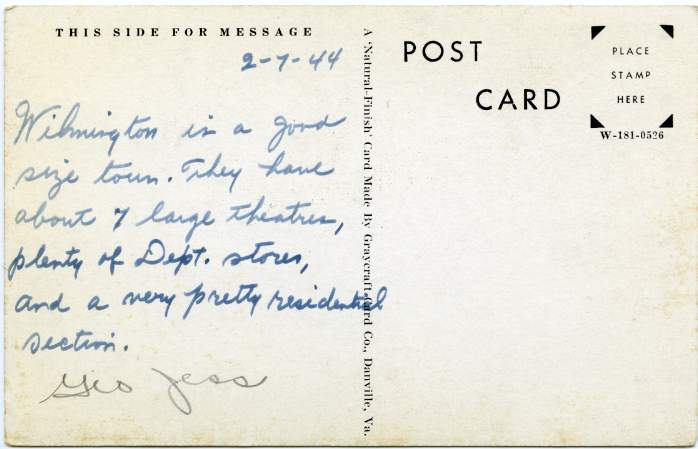 THIS SIDE FOR MESSAGE
2-7-44
Wilmington is a good
size town. They have
about 7 large theatres,
plenty of Dept. stores,
and a very pretty residential
section.
Geo Jess
A 'Natural-Finish' Card Made By Graycraft Card Co., Danville, Va.
POST
CARD
PLACE
STAMP
HERE
W-181-0526